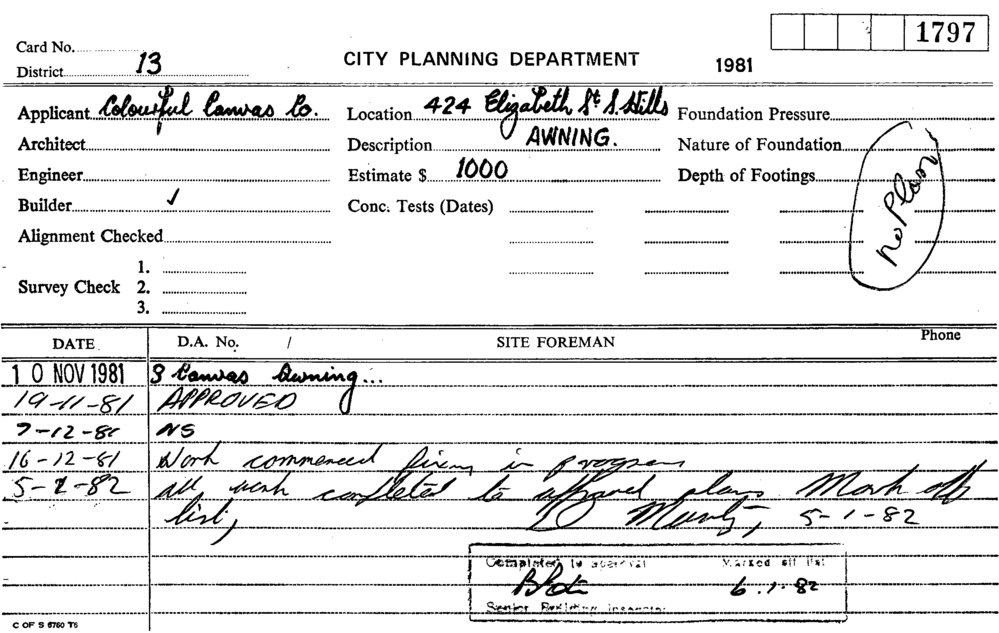 1797
Card No.
District 13
CITY PLANNING DEPARTMENT
1981
Applicant Colourful Canvas Co.
Location 424 Elizabeth St S. Hills
Foundation Pressure
Architect
Description AWNING.
Nature of Foundation
Engineer
Estimate $ 1000
Depth of Footings
no Plan
Builder ✓
Conc. Tests (Dates)
Alignment Checked
Survey Check
1.
2.
3.
DATE
D.A. No. /
SITE FOREMAN
Phone
10 NOV 1981 3 Canvas Awning...
19-11-81 APPROVED
7-12-81 NS
16-12-81 Work commenced fixing in progress
5-1-82 all work completed to approved plans Mark off
list, 5-1-82
Completed to approval Marked off list
6.1.82
Senior Building Inspector
C OF S 6760 T6